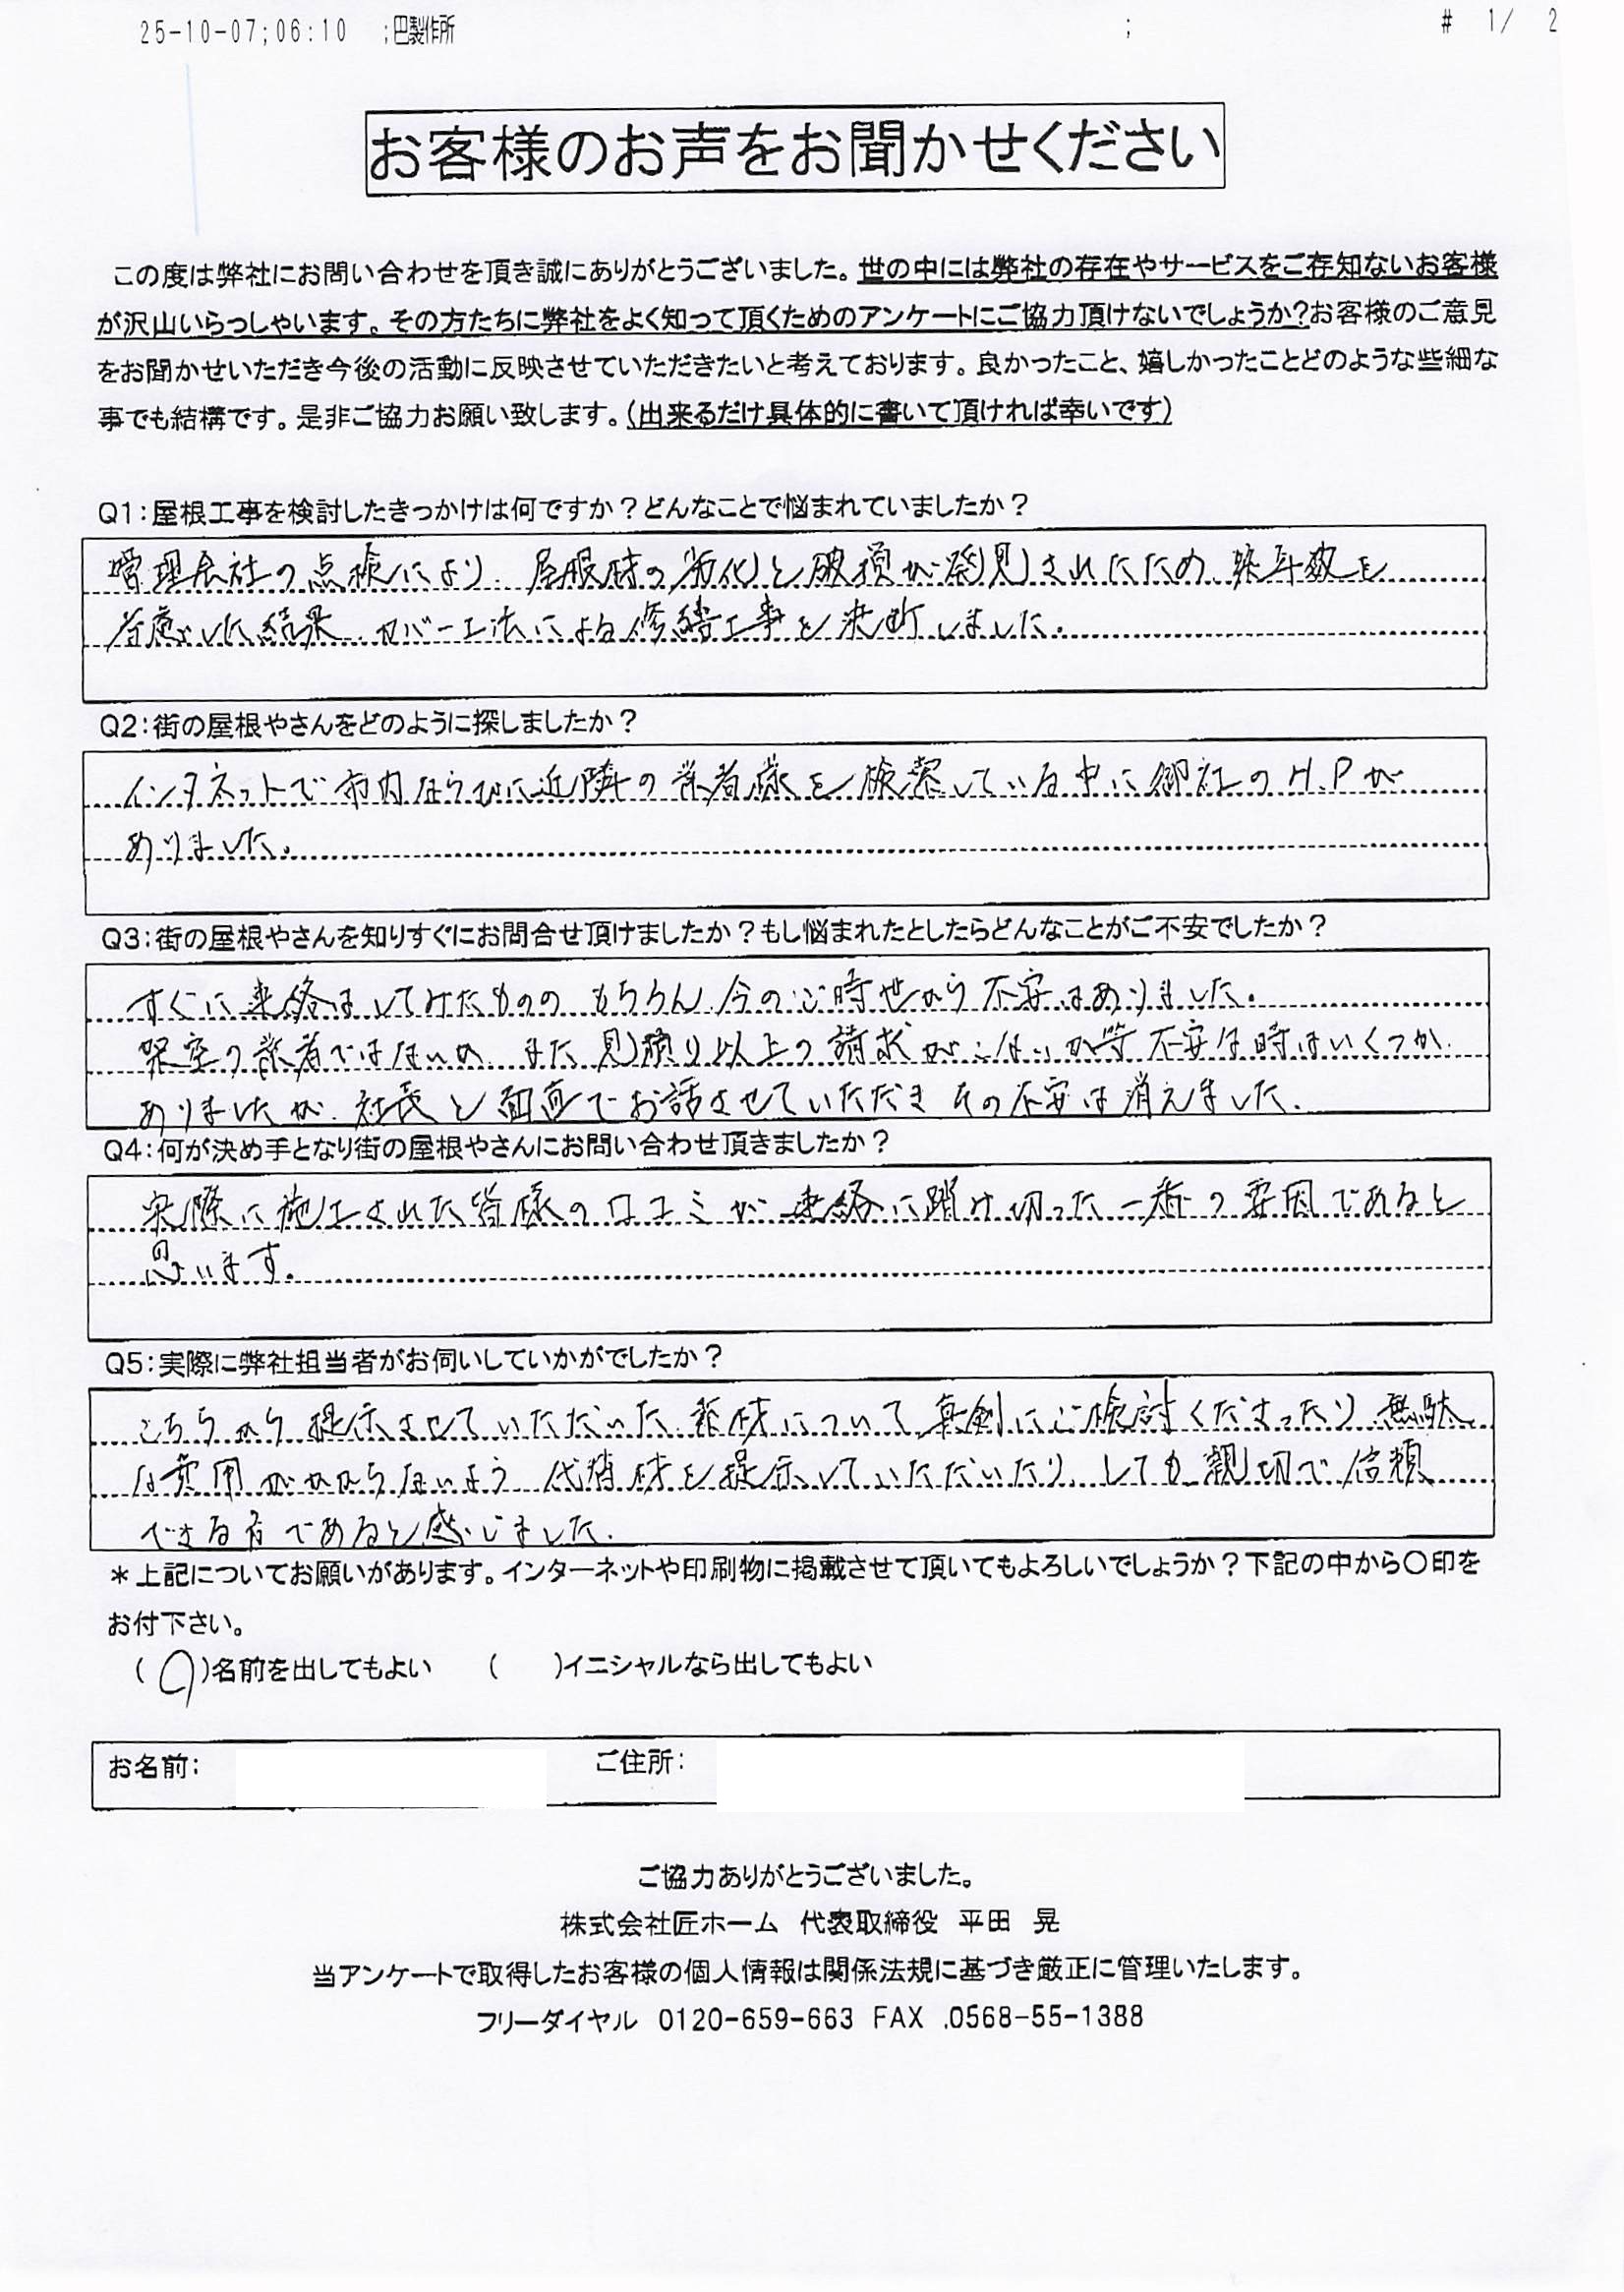 25-10-07;06:10 ;巴製作所 ; # 1/ 2
お客様のお声をお聞かせください
この度は弊社にお問い合わせを頂き誠にありがとうございました。世の中には弊社の存在やサービスをご存知ないお客様
が沢山いらっしゃいます。その方たちに弊社をよく知って頂くためのアンケートにご協力頂けないでしょうか?お客様のご意見
をお聞かせいただき今後の活動に反映させていただきたいと考えております。良かったこと、嬉しかったことどのような些細な
事でも結構です。是非ご協力お願い致します。(出来るだけ具体的に書いて頂ければ幸いです)
Q1:屋根工事を検討したきっかけは何ですか?どんなことで悩まれていましたか?
管理会社の点検により、屋根材の劣化と破損が発見されたため、築年数を
考慮した結果、カバー工法による修繕工事を決断しました。
Q2:街の屋根やさんをどのように探しましたか?
インタネットで市内ならびに近隣の業者様を検索している中に御社のH.Pが
ありました。
Q3:街の屋根やさんを知りすぐにお問合せ頂けましたか?もし悩まれたとしたらどんなことがご不安でしたか?
すぐに連絡はしてみたものの もちろん、今のご時世から不安はありました。
架空の業者ではないか、また見積り以上の請求がこないか等 不安な時はいくつか
ありましたが、社長と面直でお話させていただき その不安は消えました。
Q4:何が決め手となり街の屋根やさんにお問い合わせ頂きましたか?
実際に施工された皆様の口コミが連絡に踏み切った一番の要因であると
思います。
Q5:実際に弊社担当者がお伺いしていかがでしたか?
こちらから提示させていただいた部材について、真剣にご検討くださったり、無駄
な費用がかからないよう 代替材を提示していただいたり、しても親切で信頼
できる方であると感じました。
*上記についてお願いがあります。インターネットや印刷物に掲載させて頂いてもよろしいでしょうか?下記の中から〇印を
お付下さい。
(〇)名前を出してもよい ( )イニシャルなら出してもよい
お名前: ご住所:
ご協力ありがとうございました。
株式会社匠ホーム 代表取締役 平田 晃
当アンケートで取得したお客様の個人情報は関係法規に基づき厳正に管理いたします。
フリーダイヤル 0120-659-663 FAX .0568-55-1388